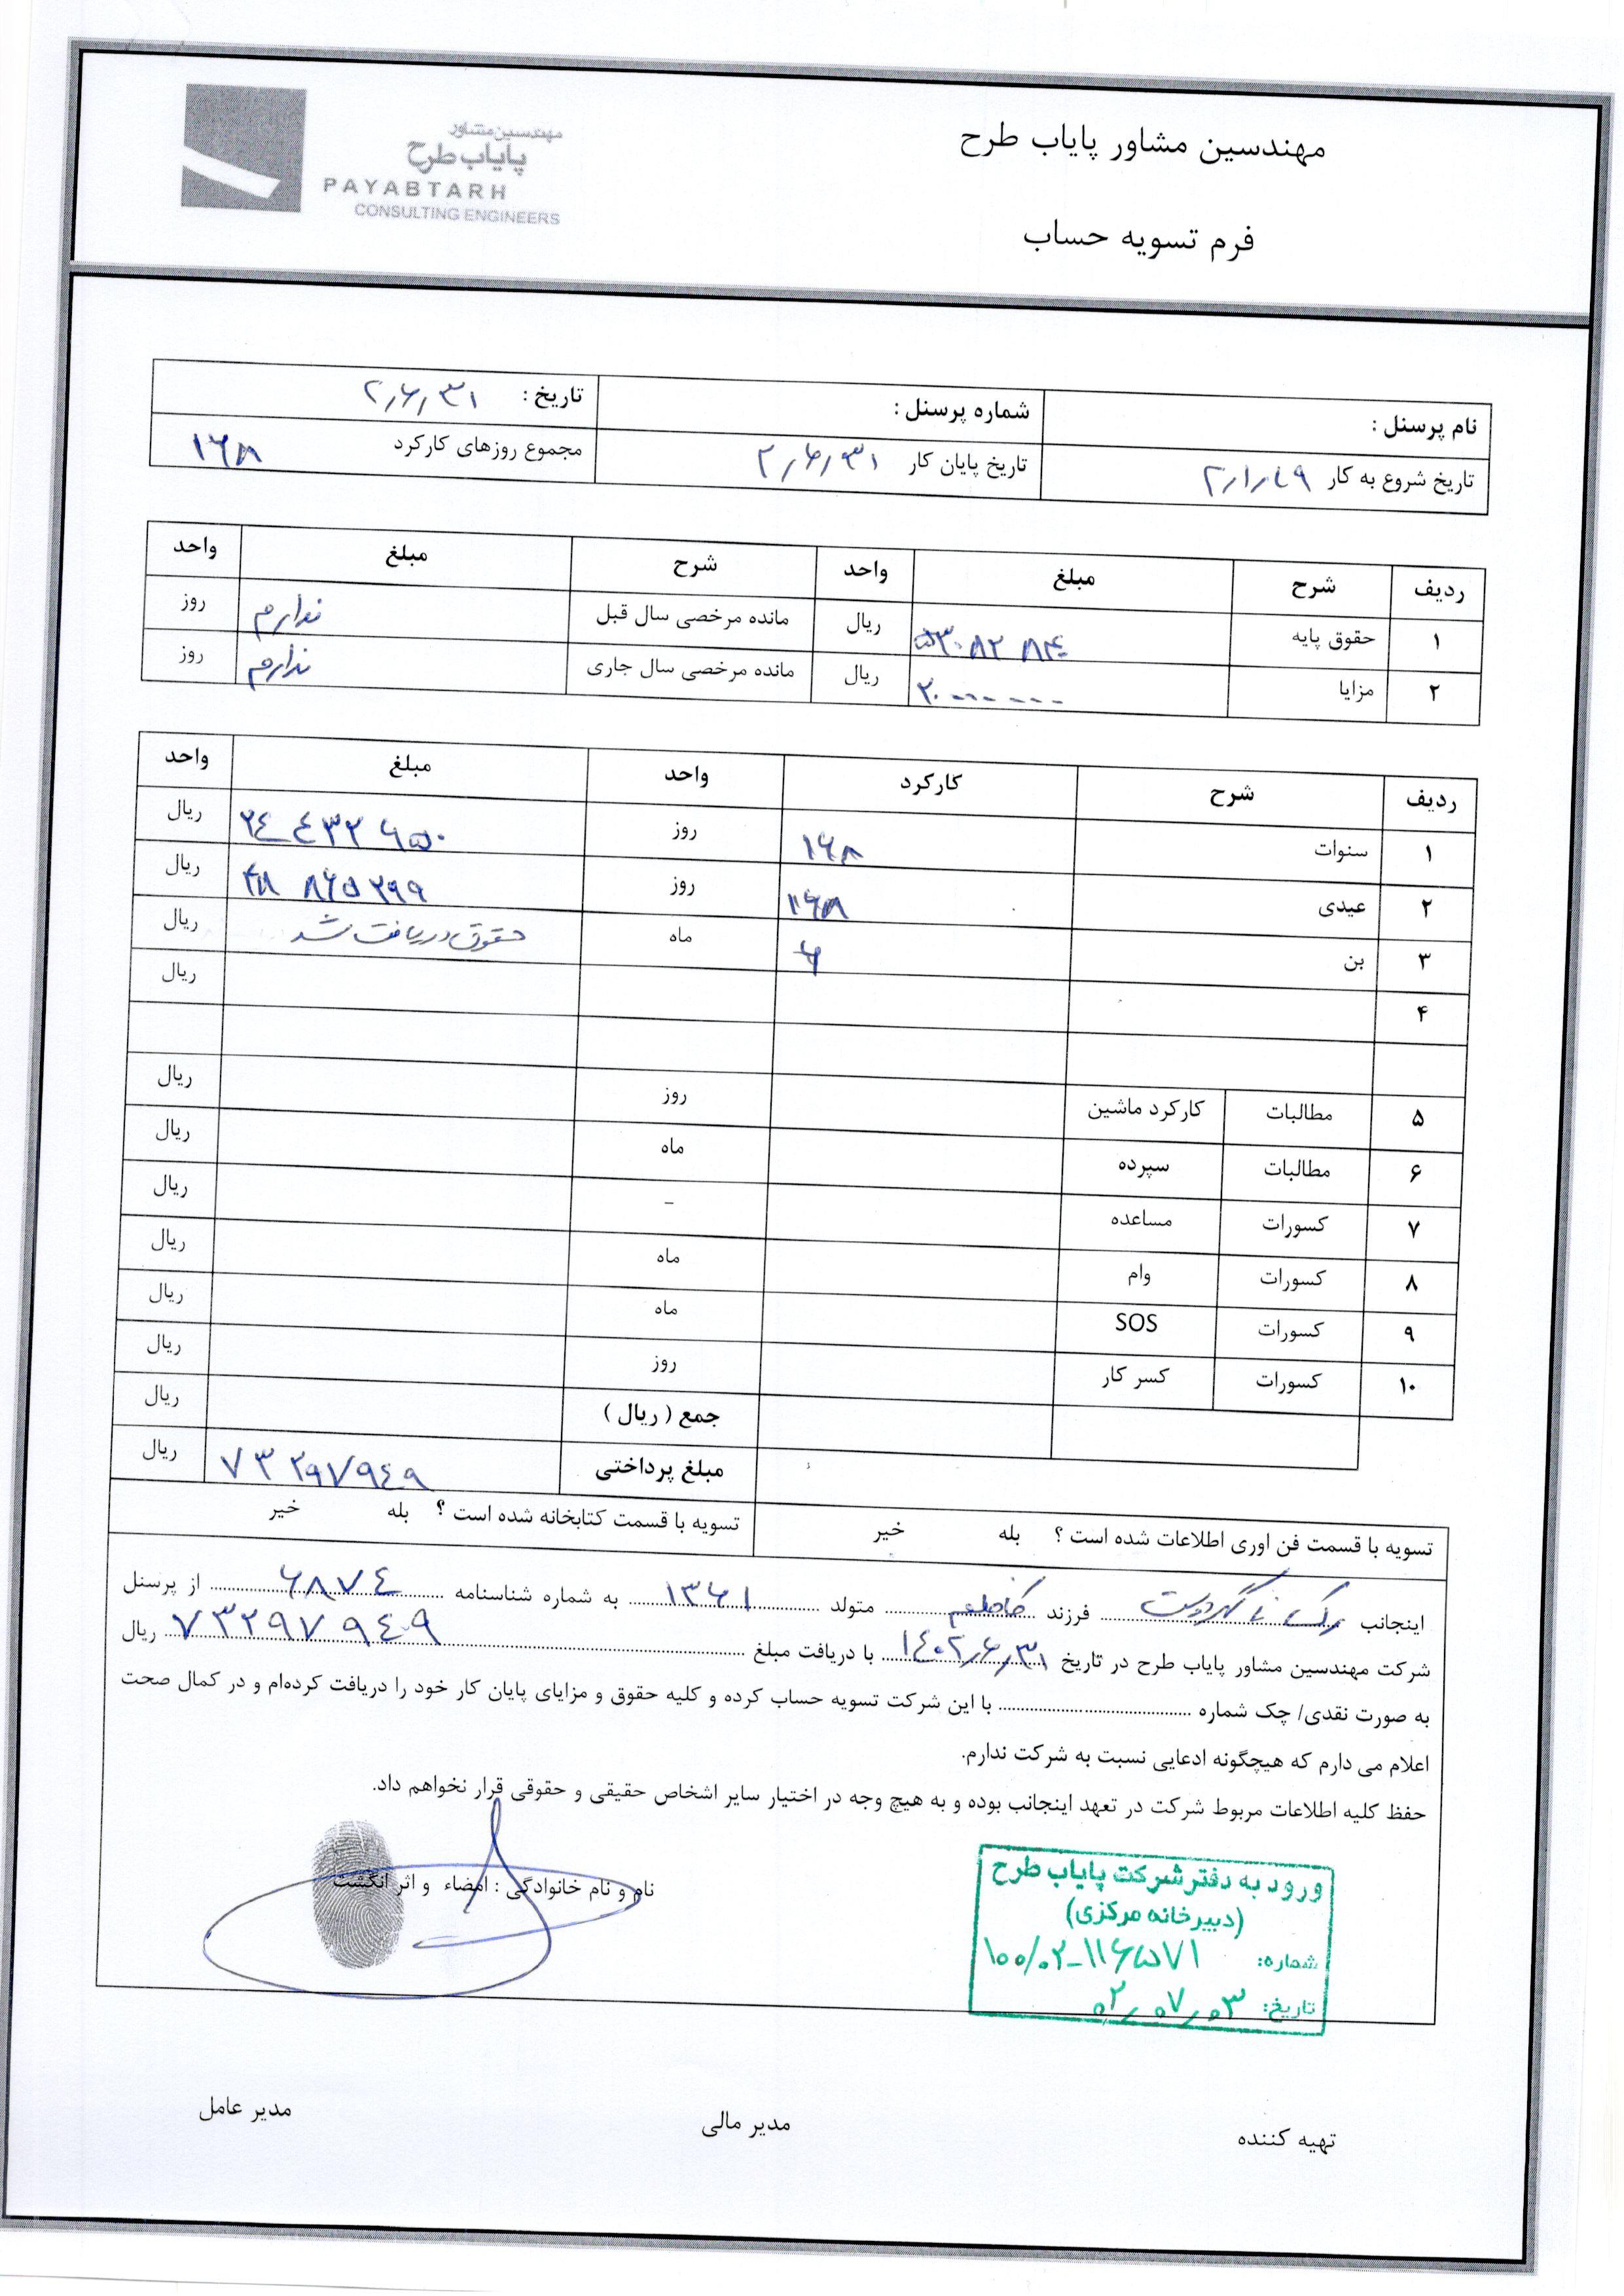 مهندسین مشاور پایاب طرح
مهندسین مشاور
پایاب طرح
PAYABTARH
CONSULTING ENGINEERS
فرم تسویه حساب
نام پرسنل : شماره پرسنل : تاریخ : ۲٫۶٫۳۱
تاریخ شروع به کار ۲٫۱٫۱۹ تاریخ پایان کار ۲٫۶٫۳۱ مجموع روزهای کارکرد ۱۶۸
ردیف شرح مبلغ واحد شرح مبلغ واحد
۱ حقوق پایه ریال مانده مرخصی سال قبل ندارم روز
۲ مزایا ریال مانده مرخصی سال جاری ندارم روز
ردیف شرح کارکرد واحد مبلغ واحد
۱ سنوات ۱۶۸ روز ۲۴ ۴۳۲ ۶۵۰ ریال
۲ عیدی ۱۶۸ روز ۴۸ ۸۶۵ ۲۹۹ ریال
۳ بن ۶ ماه حقوق دریافت شد ریال
۴ ریال
۵ مطالبات کارکرد ماشین روز ریال
۶ مطالبات سپرده ماه ریال
۷ کسورات مساعده - ریال
۸ کسورات وام ماه ریال
۹ کسورات SOS ماه ریال
۱۰ کسورات کسر کار روز ریال
جمع ( ریال ) ریال
مبلغ پرداختی ۷۳ ۲۹۷ ۹۴۹ ریال
تسویه با قسمت فن اوری اطلاعات شده است ؟ بله خیر تسویه با قسمت کتابخانه شده است ؟ بله خیر
اینجانب فرزند متولد ۱۳۶۱ به شماره شناسنامه ۶۸۷۴ از پرسنل
شرکت مهندسین مشاور پایاب طرح در تاریخ ۱۴۰۲٫۶٫۳۱ با دریافت مبلغ ۷۳۲۹۷۹۴۹ ریال
به صورت نقدی/ چک شماره با این شرکت تسویه حساب کرده و کلیه حقوق و مزایای پایان کار خود را دریافت کرده‌ام و در کمال صحت
اعلام می دارم که هیچگونه ادعایی نسبت به شرکت ندارم.
حفظ کلیه اطلاعات مربوط شرکت در تعهد اینجانب بوده و به هیچ وجه در اختیار سایر اشخاص حقیقی و حقوقی قرار نخواهم داد.
نام و نام خانوادگی : امضاء و اثر انگشت
ورود به دفتر شرکت پایاب طرح
(دبیرخانه مرکزی)
شماره: ۱۰۰/۰۲-۱۱۶۵۷۱
تاریخ: ۰۲٫۰۷٫۰۳
تهیه کننده مدیر مالی مدیر عامل